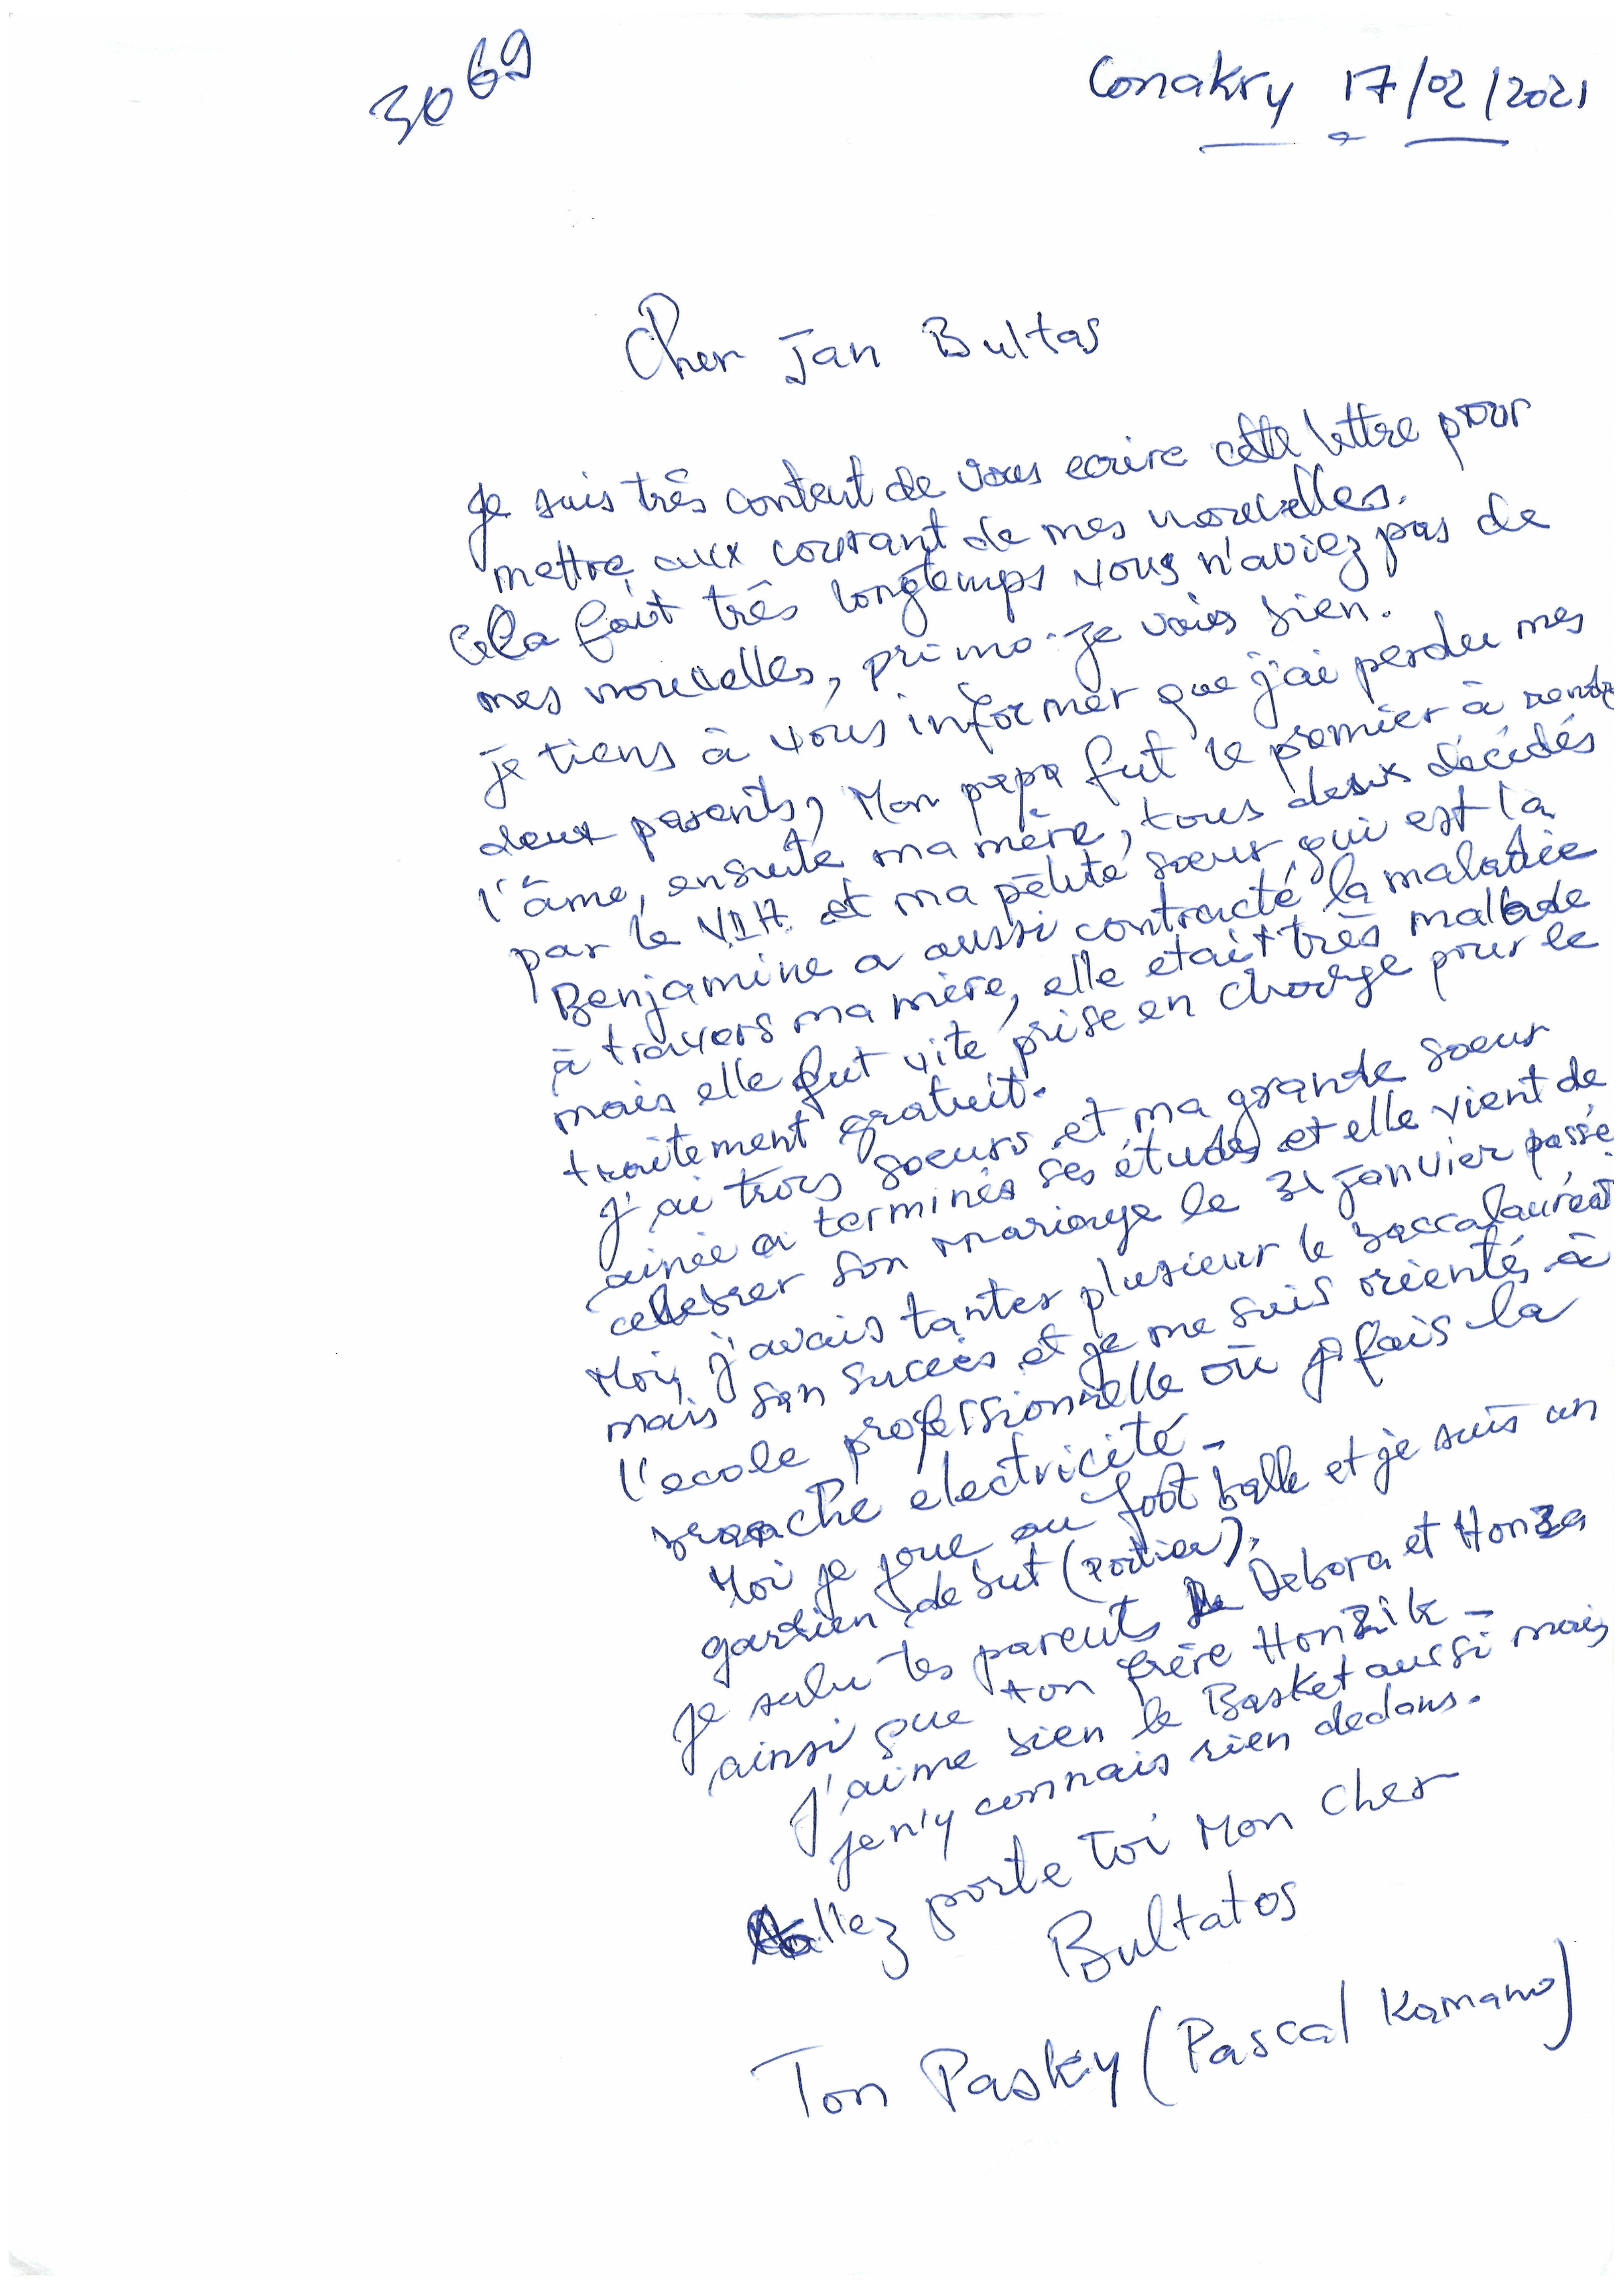 3069
Conakry 17/02/2021
Cher Jan Bultas
Je suis très content de vous ecrire cette lettre pour
mettre aux courant de mes nouvelles.
Cela fait très longtemps vous n'aviez pas de
mes nouvelles, primo je vais bien.
je tiens à vous informer que j'ai perdu mes
deux parents, Mon papa fut le premier à rendre
l'âme, ensuite ma mère, tous deux décédés
par le V.I.H. et ma petite soeur, qui est la
Benjamine a aussi contracté la maladie
à travers ma mère, elle etait très malade
mais elle fut vite prise en charge pour le
traitement gratuit.
J'ai trois soeurs et ma grande soeur
ainée a terminés ses études et elle vient de
celebrer son mariage le 31 janvier passé.
Moi, j'avais tanter plusieur le baccalauréat
mais san succès et je me suis orientés à
l'ecole professionnelle où je fais la
branche electricité -
Moi je joue au foot balle et je suis un
gardien de but (portier).
Je salu tes parents Debora et Honza
ainsi que ton frère Honzik -
J'aime bien le Basket aussi mais
je n'y connais rien dedans.
Allez porte toi Mon cher
Bultatos
Ton Pasky (Pascal Kamano)